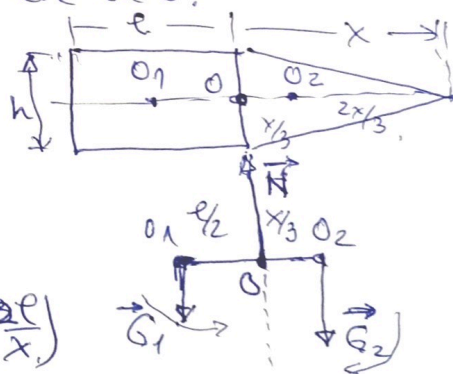 ℓ x
h O₁ O O₂
x/3 2x/3
N⃗
O₁ ℓ/2 x/3 O₂
O
2ℓ/x)
G⃗₁ G⃗₂